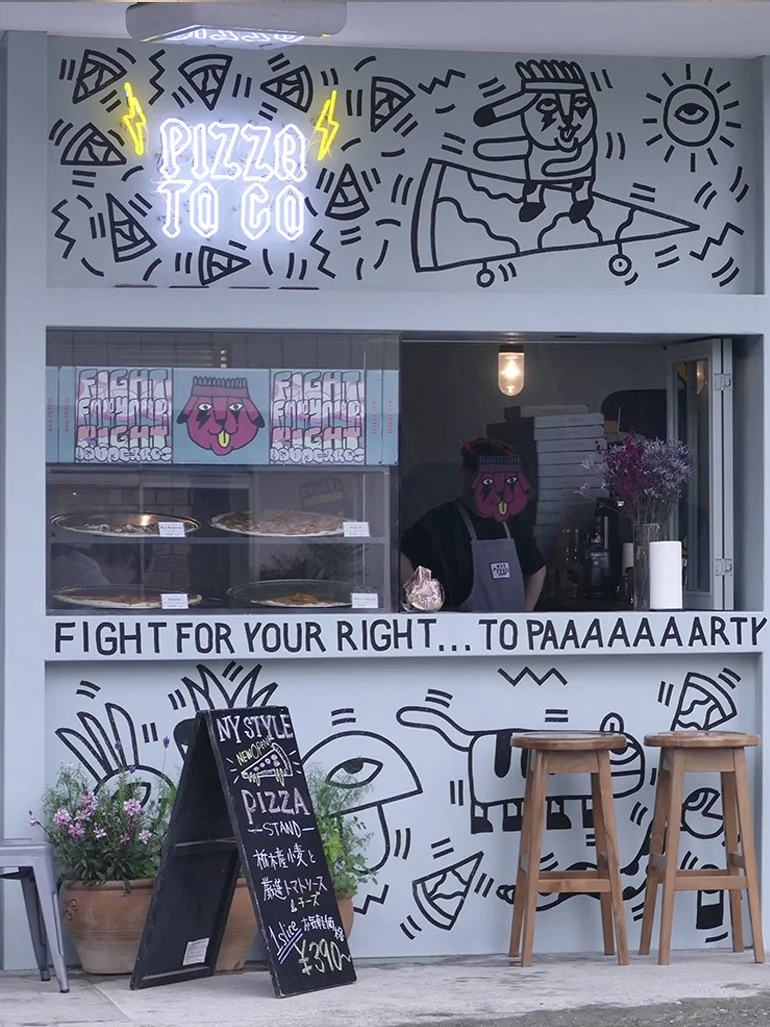 PIZZA
TO GO
FIGHT
FOR YOUR
RIGHT
FIGHT
FOR YOUR
RIGHT
FIGHT FOR YOUR RIGHT... TO PAAAAAAAARTY
NY STYLE
NEW OPEN
PIZZA
STAND
栃木産小麦と
厳選トマトソース
&チーズ
1 slice
¥390~